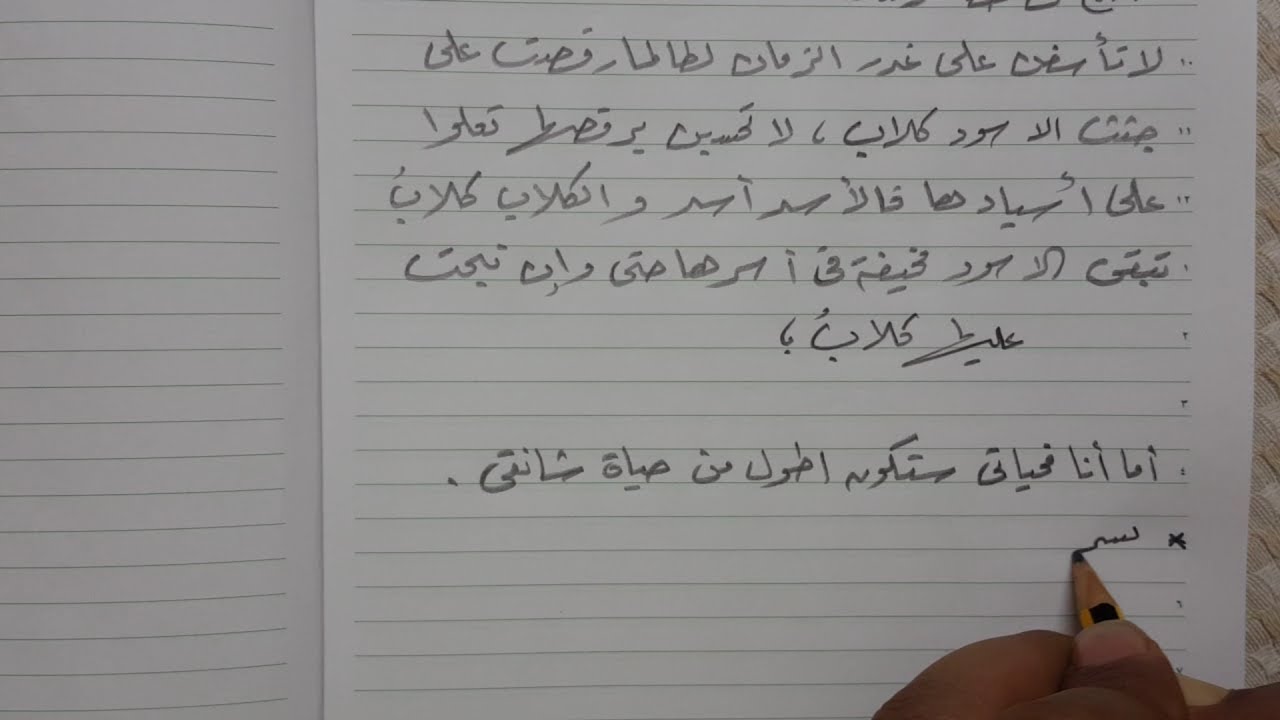 لا تأسفن على غدر الزمان لطالما رقصت على
جثث الاسود كلاب ، لا تحسبن برقصها تعلوا
على أسيادها فالأسد أسد والكلاب كلابُ
تبقى الاسود مخيفة في أسرها حتى وإن نبحت
عليها كلابُ ؛
أما أنا فحياتي ستكون اطول من حياة شانقي .